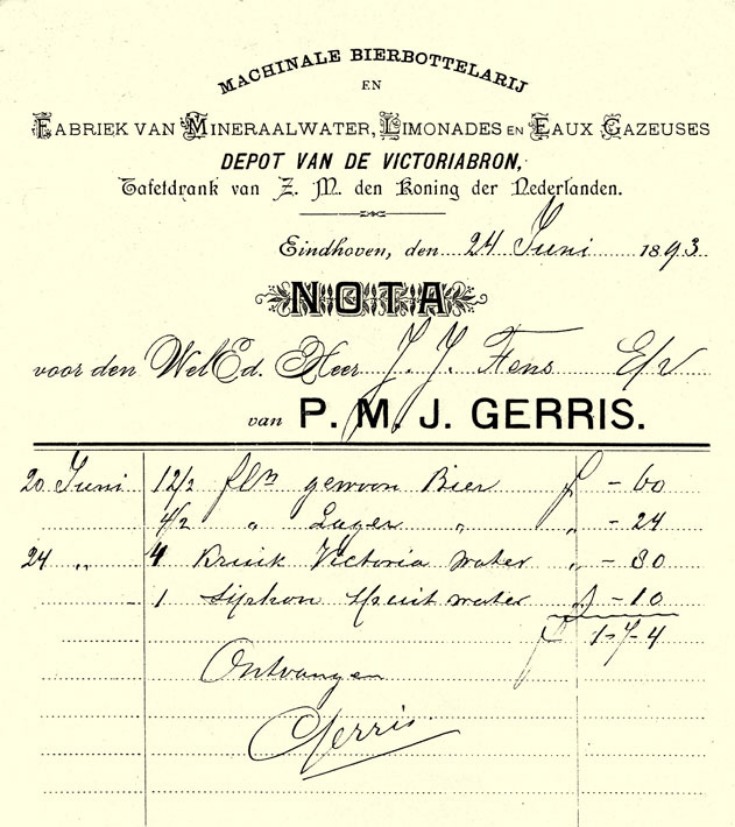 MACHINALE BIERBOTTELARIJ
EN
FABRIEK VAN MINERAALWATER, LIMONADES EN EAUX GAZEUSES
DEPOT VAN DE VICTORIABRON,
Tafeldrank van Z. M. den Koning der Nederlanden.
Eindhoven, den 24 Juni 1893.
NOTA
voor den WelEd. Heer J. J. Fens E/v
van P. M. J. GERRIS.
20 Juni 12/2 fln gewoon Bier f - 60
4/2 " Lager " " - 24
24 " 4 Kruik Victoria water " - 80
1 Siphon Spuit water " - 10
f 1-7-4
Ontvangen
Gerris